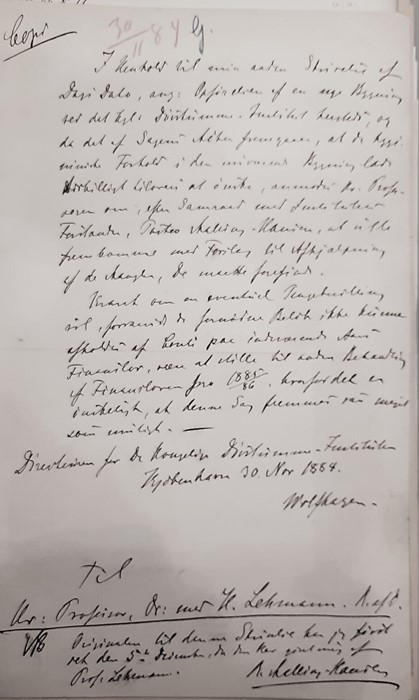 Copi
30/11 84 G.
I Henhold til min anden Skrivelse af
Dags Dato, ang: Opførelsen af en nye Bygning
ved det kgl: Døvstumme-Institut herstede, og
da det af Sagens Akter fremgaaer, at de hygi-
einiske Forhold i den nuværende Bygning lade
adskilligt tilovers at ønske, anmodes Hr. Profes-
soren om, efter Samraad med Instituttets
Forstander, Pastor Malling-Hansen, at ville
fremkomme med Forslag til Afhjælpning
af de Mangler, De maatte forefinde.
Krav om en eventuel
vil, forsaavidt de fornødne Beløb ikke kunne
afholdes af Conti paa indeværende Aars
Finanslov, være at stille til anden Behandling
af Finansloven for 1885/86, hvorfor det er
ønskeligt, at denne Sag fremmes saa meget
som muligt. —
Direktionen for De Kongelige Døvstumme-Instituter
Kjøbenhavn 30. Nov 1884.
Wolfhagen.
Til
Hr. Professor, Dr: med K. Lehmann. R. af D.
NB Originalen til denne Skrivelse har jeg først
set den 5te December, da den kar
Prof. Lehmann.
R. Malling-Hansen